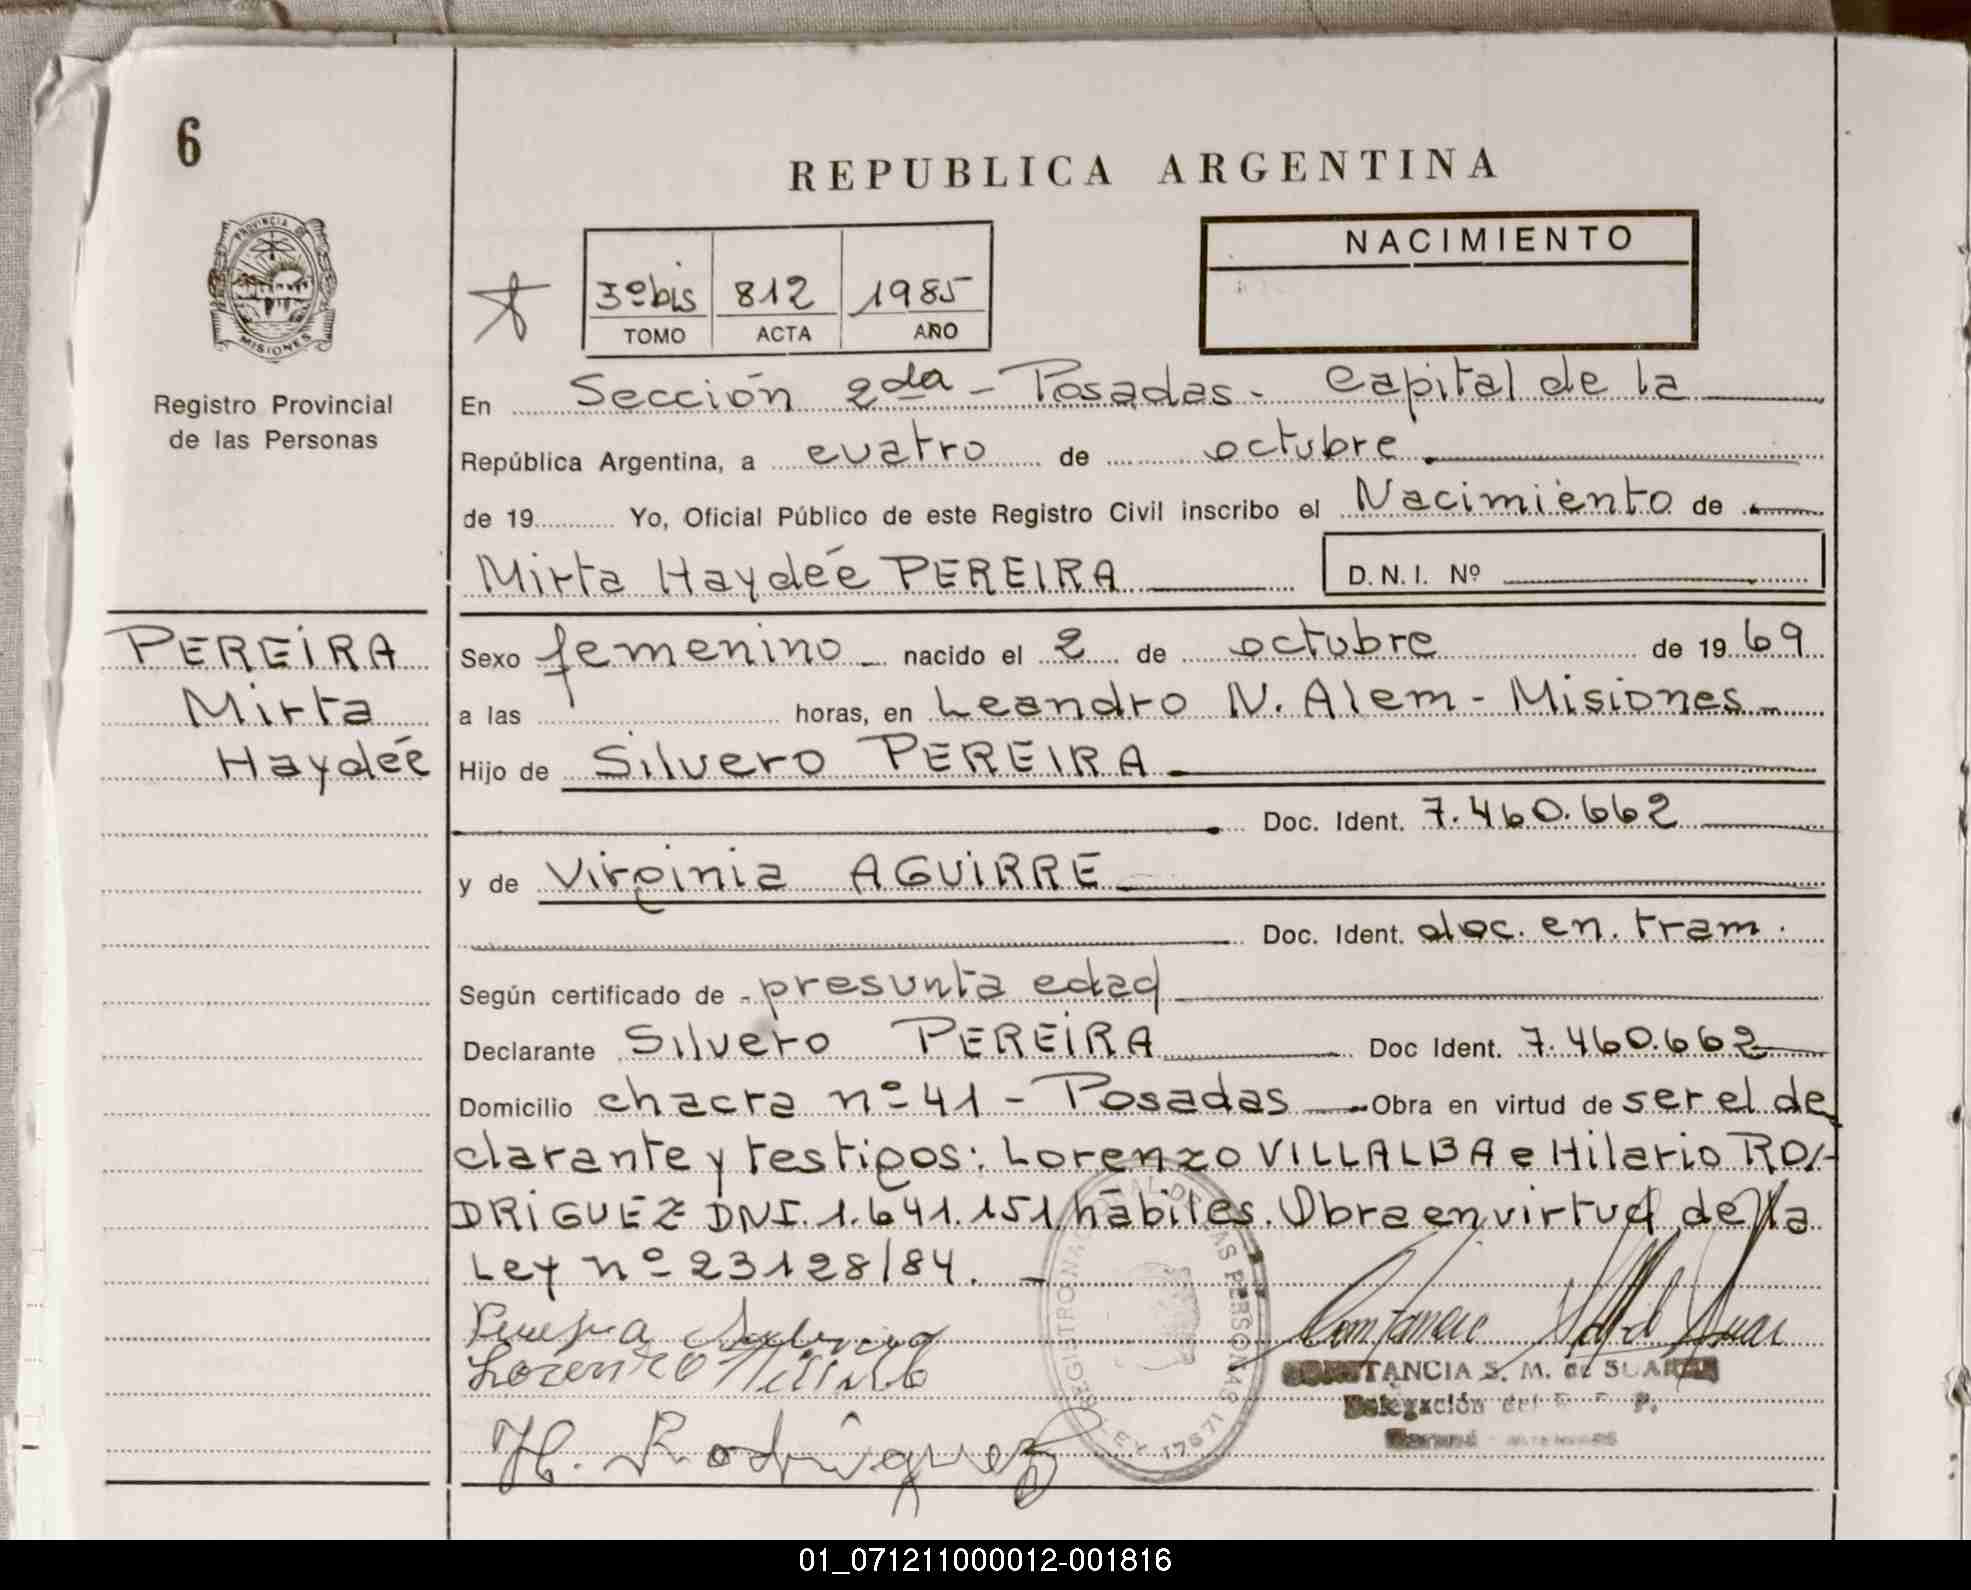 6
REPUBLICA ARGENTINA
PROVINCIA DE
MISIONES
Registro Provincial
de las Personas
3º bis 812 1985
TOMO ACTA AÑO
NACIMIENTO
En Sección 2da - Posadas - Capital de la
República Argentina, a cuatro de octubre
de 19 Yo, Oficial Público de este Registro Civil inscribo el Nacimiento de
Mirta Haydée PEREIRA D.N.I. Nº
PEREIRA
Mirta
Haydée
Sexo femenino nacido el 2 de octubre de 1969
a las horas, en Leandro N. Alem - Misiones
Hijo de Silvero PEREIRA
Doc. Ident. 7.460.662
y de Virginia AGUIRRE
Doc. Ident. doc. en. tram.
Según certificado de - presunta edad
Declarante Silvero PEREIRA Doc Ident. 7.460.662
Domicilio chacra nº 41 - Posadas Obra en virtud de ser el de
clarante y testigos: Lorenzo VILLALBA e Hilario RO-
DRIGUEZ DNI. 1.641.151 hábiles. Obra en virtud de la
Ley nº 23128/84. -
REGISTRO NACIONAL DE LAS PERSONAS
LEY 17671
Pereira
Lorenzo Villalb
H. Rodriguez
CONSTANCIA S. M. de SUAREZ
Delegación del
01_071211000012-001816